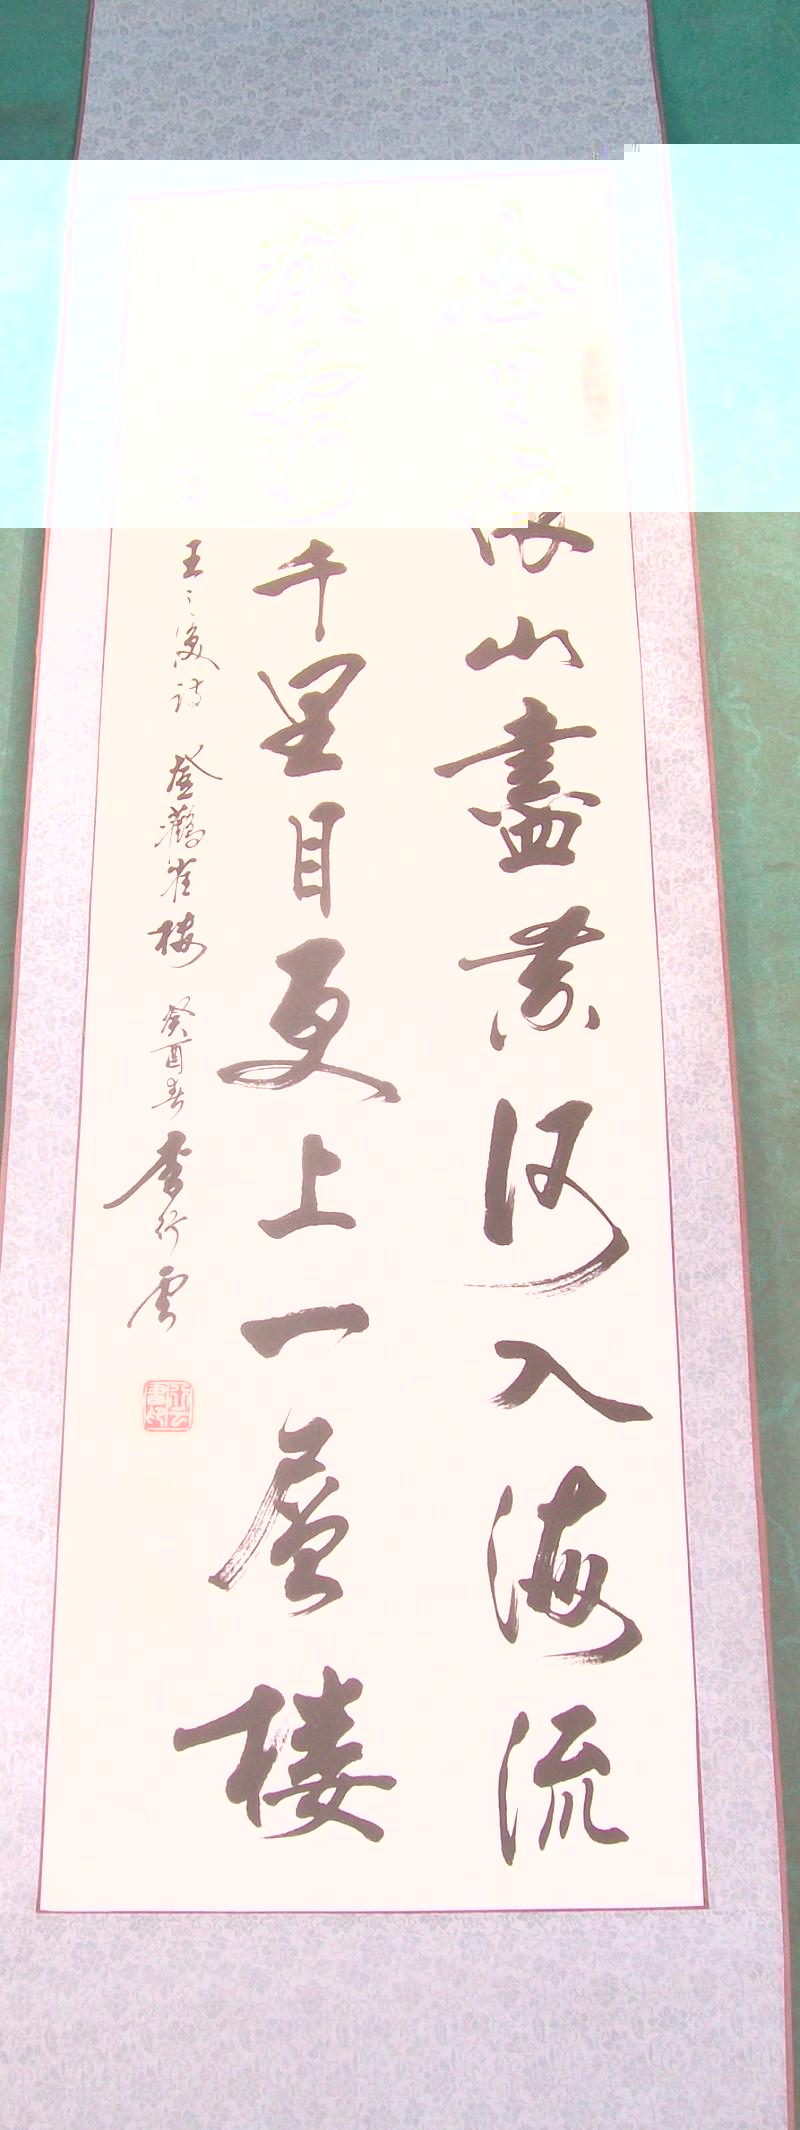 白日依山盡黄河入海流
欲窮千里目更上一層樓
王之渙詩 登鸛雀樓 癸酉春 李行雲